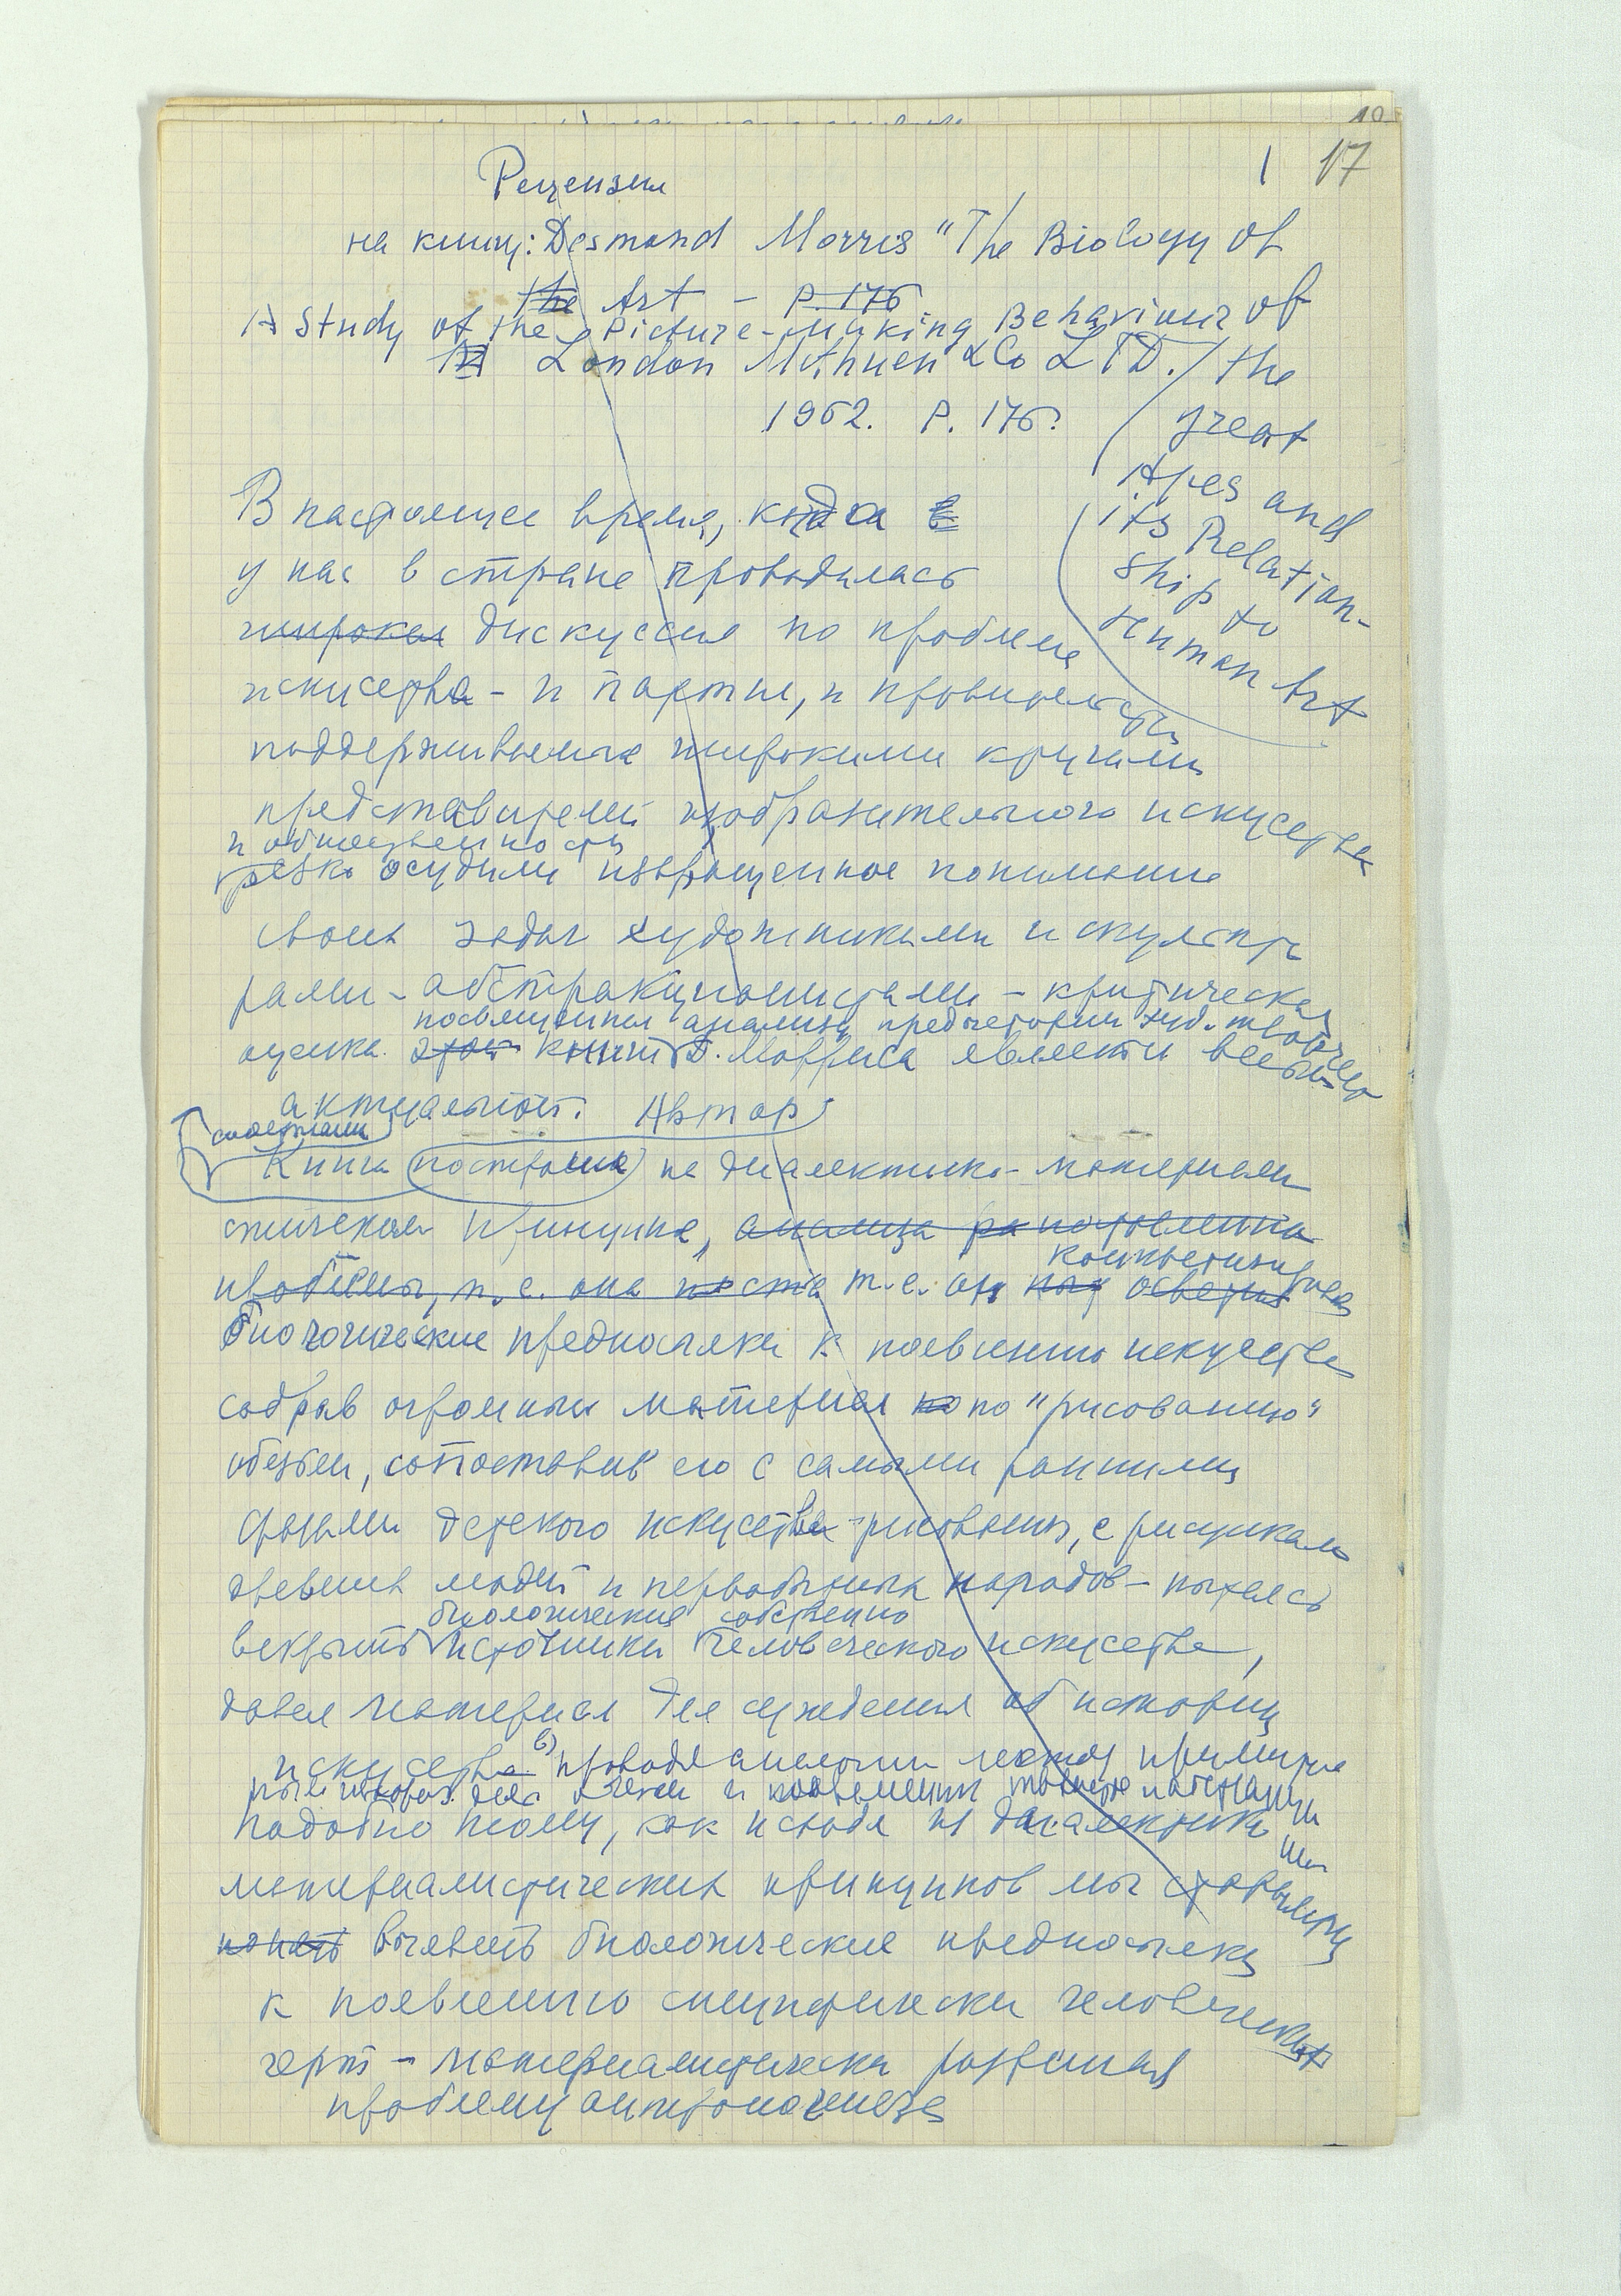 10
1 17
Рецензия
на книгу: Desmond Morris "The Biology of
the Art - P. 176
A Study of the Picture-Making Behaviour of
London Methuen & Co LTD. / the
1962. P. 176.
great
Apes and
its Relation-
ship to
Human Art
В настоящее время, когда
у нас в стране проводилась
широкая дискуссия по проблеме
искусства - и партия, и правительство
поддерживаемые широкими кругами
представителей изобразительного искусства
и общественности
резко осудили извращенное понимание
своих задач художниками и скульпто
рами - абстракционистами - критическая
посвященной анализу предыстории худ. творчества
оценка этой книги Д. Морриса является весьма
актуальной. Автор
Книга построена на диалектико-материали
стическом принципе, анализа
проблемы, т.е. она т.е. он
биологические предпосылки к появлению искусства
собрав огромный материал по "рисованию"
обезьян, сопоставив его с самыми ранними
фазами детского искусства - рисования, с рисунками
древних людей и первобытных народов - пытаясь
биологические собственно
вскрыть источники человеческого искусства,
давая материал для суждения об истории
искусства проводя аналогии между
подобно тому, как исходя из диалектико
материалистических принципов мы стараемся
понять выявить биологические предпосылки
к появлению специфически человеческих
черт - материалистически развивая
проблему антропогенеза